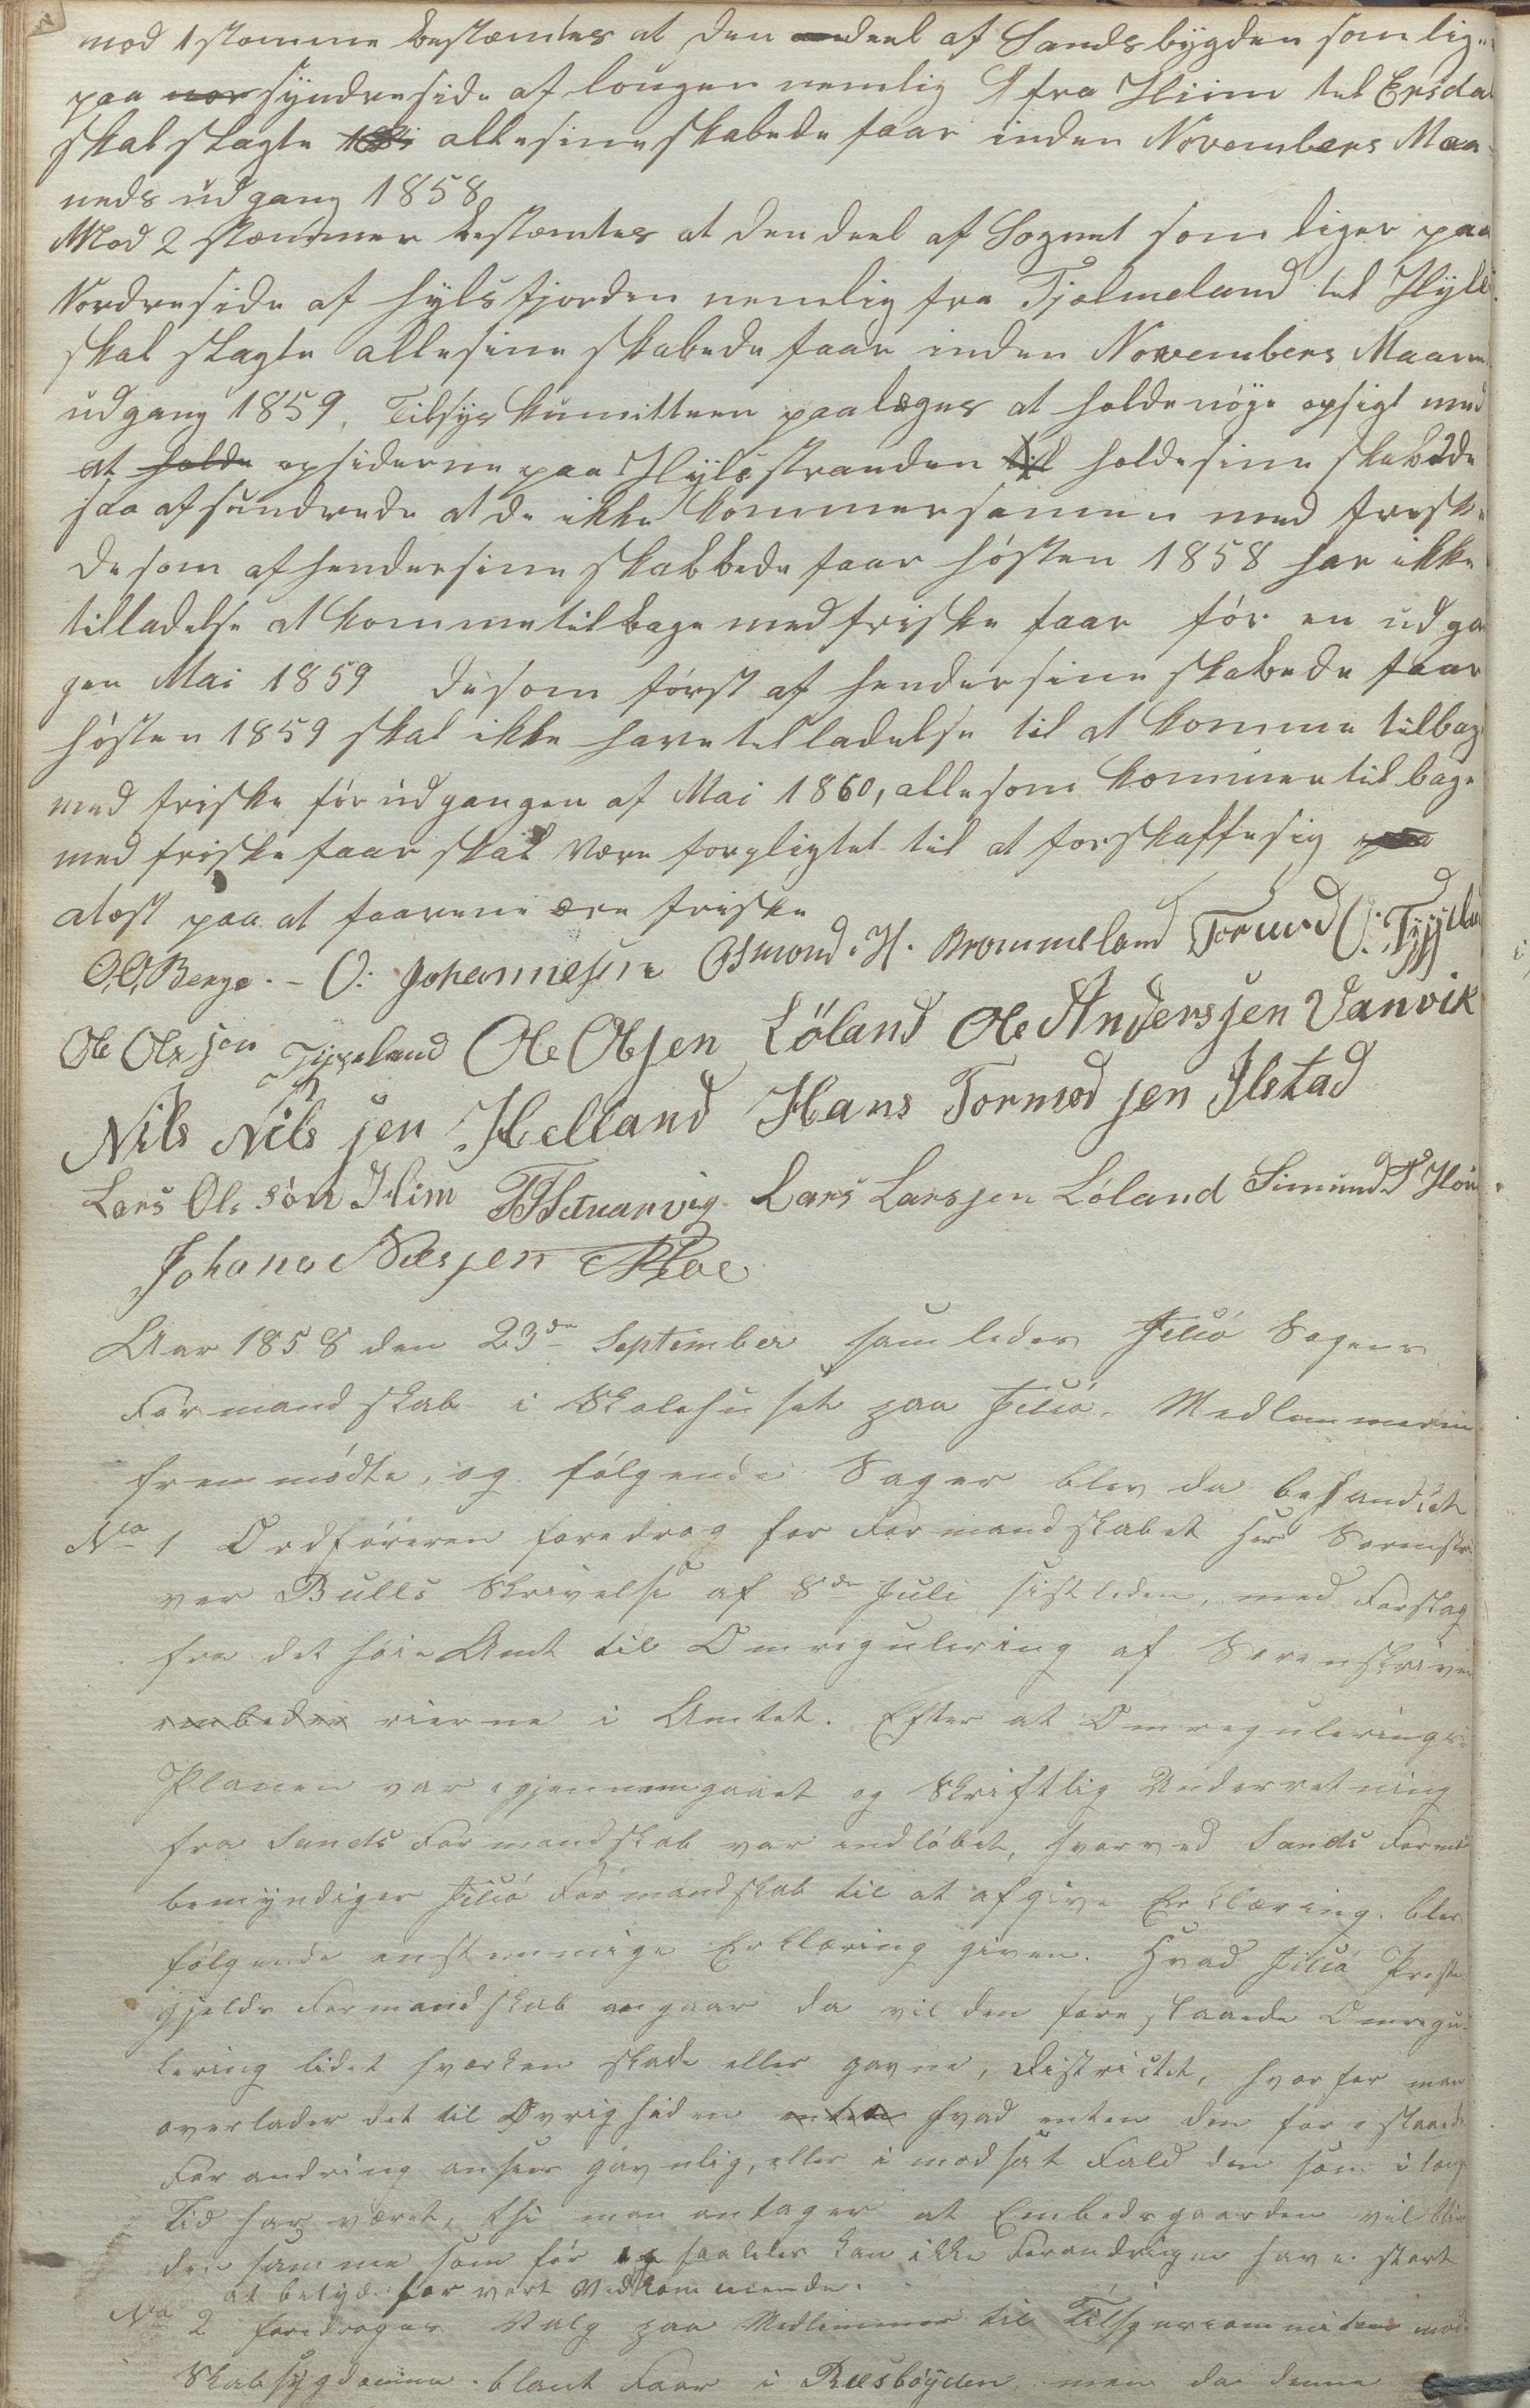 mod 1 stemme bestemtes at den deel af Sandsbygden som lig
paa nor syndreside af lougen nemlig fra Hiim tel Ersdal
skal slagte allesine skabede faar inden Novembers Maa
neds udgang 1858
Mod 2 stemmer bestemtes at den deel af Sognet som liger paa
Nordreside af Hylsfjorden nemlig fra Tjelmeland tel Hyls
skal slagte allesine skabede faar inden Novembers Maane
udgang 1859. Tilsyskumitteen paalegges at holde nöye opsigt med
at holde opsiderne paa Hylsstranden til holde sine skabede
saa afsundrede at de ikke kommer samen med friske
de som afhender sine skabbede faar hösten 1858 har ikke
tilladelse at komme tilbage med friske faar för en udgan
gen Mai 1859 de som først afhender sine skabede faar
hösten 1859 skal ikke have telladelse til at komme tilbage
med friske för udgangen af Mai 1860, alle som kommer tilbage
med friske faar skal være forpligtet til at forskaffe sig paa
atest paa at faarene ere friske
O. O. Berge. - O: Johannesen Osmond. H. Brommeland Tormod O: Tyssela
Ole Olessen Tysseland Ole Olsen Löland Ole Andersen Vanvik
Nils Nilssen Helland Hans Tormodsen Ilstad
Lars Olsøn Hiim Lars Larssen Löland Simund
Johanes Nilssen Moe
Aar 1858 den 23de September samledes Jelsö Sogns
Formandskab i Skolehuset paa Jelsö. Medlemmerne
fremmödte, og følgende Sager blev da behandlet
No 1 Ordføreren foredrog for Formandskabet Her Sorenskri
ver Bulls Skrivelse af 8de Juli sistleden, med Forslag
fra det høie Amt til Omregulering af Sorenskrive
embeder rierne i Amtet. Efter at Omregulerings-
Planen var igjennemgaaet og Skriftlig Underretning
fra Sands Formandskab var indløbet, hvorved Sands Formd
bemyndiger Jelsö Formandskab til at afgive Erklæring, blev
følgende enstemmige Erklæring given. Hvad Jelsö Preste
gjelds Formandskab angaar da vil den foreslaaede Omregu-
lering lidet hverken skade eller gavne, Districtet, hvorfor man
overlader det til Øvrigheden enten hvad enten den foreslaaede
Forandring ansees gavnlig, eller i modsat Fald den som i lang
Tid har været, thi man antager at Embedsgaarden vil bliv
den samme som før og saaledes kan ikke Forandringen have stort
at betyde for vort Vedkommende.
No 2 foredroges Valg paa Medlemmer til Tilsynscommiteen mod
Skabsygdomme blant Faar i Rælsbøyden, men da denne